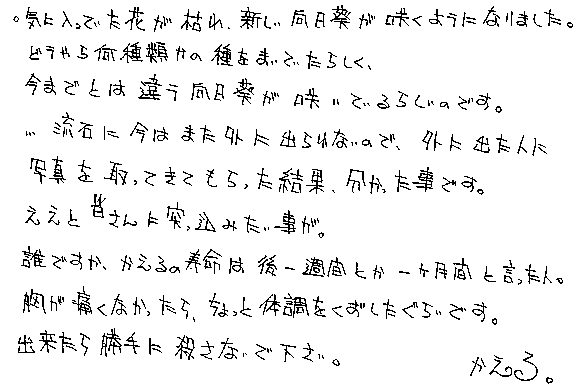 。気に入っていた花が枯れ、新しい向日葵が咲くようになりました。
どうやら何種類かの種をまいていたらしく、
今までとは違う向日葵が咲いているらしいのです。
… 流石に今はまだ外に出られないので、外に出た人に
写真を取ってきてもらった結果、分かった事です。
ええと皆さんに突っ込みたい事が。
誰ですか、かえるの寿命は後一週間とか一ヶ月間と言った人。
胸が痛くなかったら、ちょっと体調をくずしたぐらいです。
出来たら勝手に殺さないで下さい。
かえる。